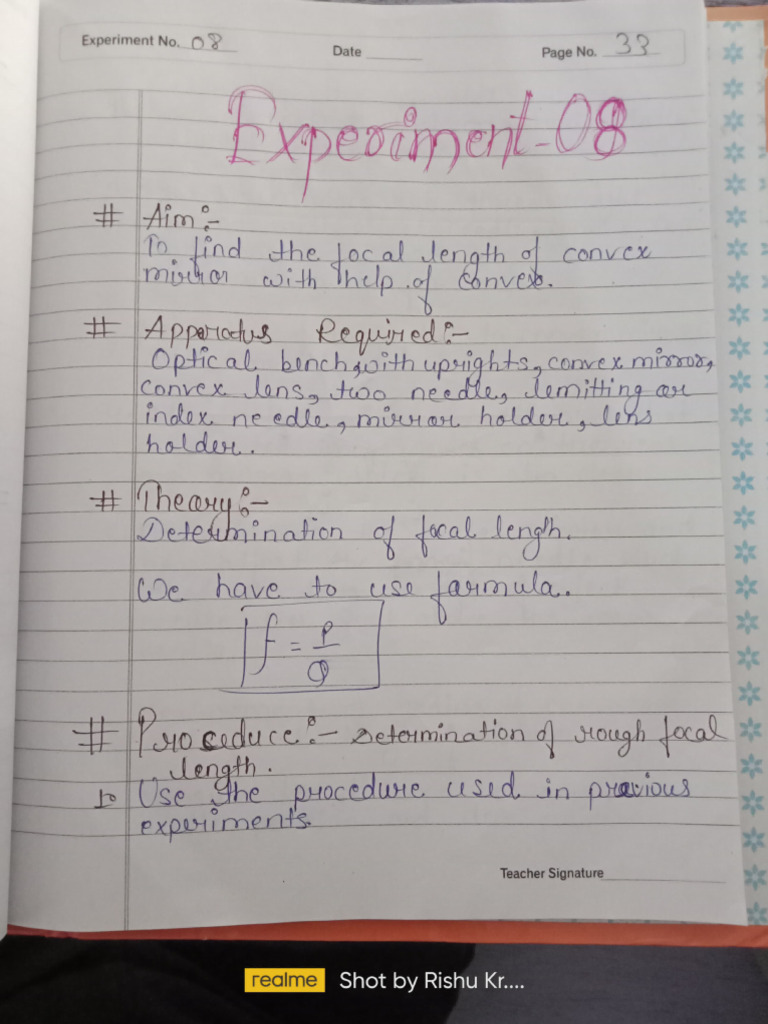 Experiment No. 08 Date Page No. 33
Experiment-08
# Aim:-
To find the focal length of convex
mirror with help of convex.
# Apparatus Required:-
Optical bench with uprights, convex mirror,
convex lens, two needle, lemitting or
index needle, mirror holder, lens
holder.
# Theory:-
Determination of focal length.
We have to use farmula.
f = P/Q
# Proceduce:- Determination of rough focal
length.
1. Use the procedure used in previous
experiments.
Teacher Signature
realme Shot by Rishu Kr....